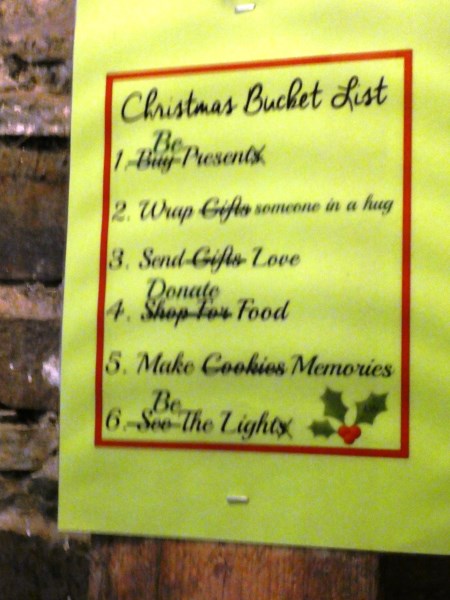 Christmas Bucket List
Be
1. Buy Presents
2. Wrap Gifts someone in a hug
3. Send Gifts Love
Donate
4. Shop For Food
5. Make Cookies Memories
Be
6. See The Lights